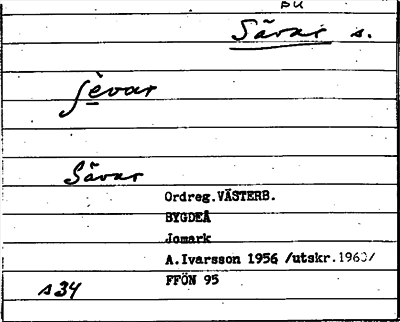 Sävar s.
sèvar
Sävar
Ordreg.VÄSTERB.
BYGDEÅ
Jomark
A.Ivarsson 1956 /utskr.1960/
FFÖN 95
s 34